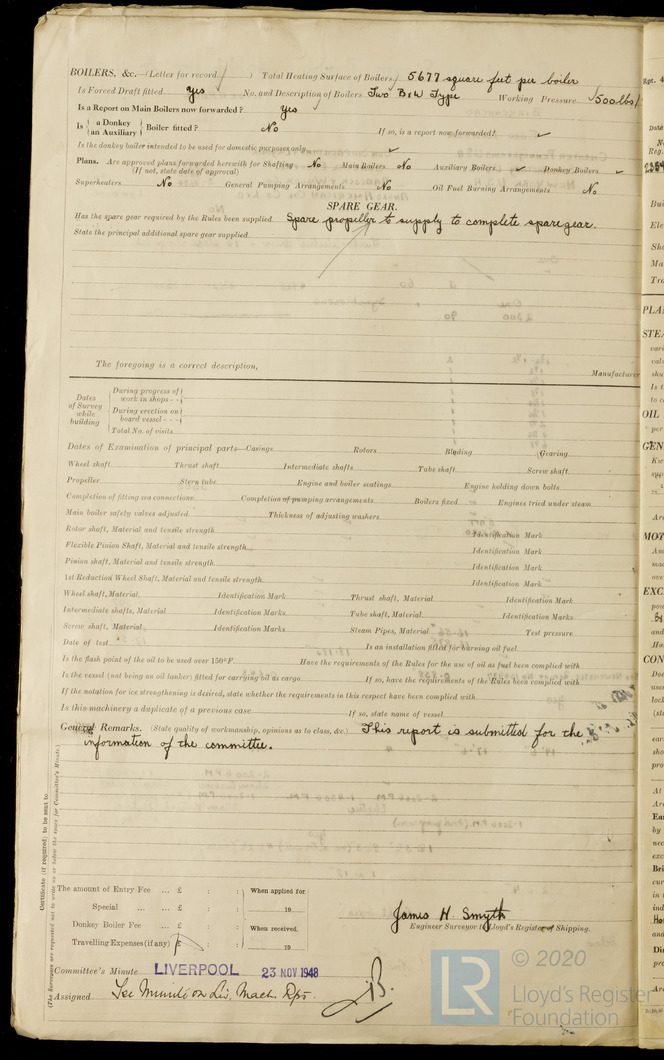 BOILERS, &c.—(Letter for record ) Total Heating Surface of Boilers 5677 square feet per boiler
Is Forced Draft fitted Yes No. and Description of Boilers Two B&W Type Working Pressure 500 lbs/
Is a Report on Main Boilers now forwarded? Yes
Is { a Donkey / an Auxiliary } Boiler fitted? No If so, is a report now forwarded?
Is the donkey boiler intended to be used for domestic purposes only
Plans. Are approved plans forwarded herewith for Shafting No Main Boilers No Auxiliary Boilers Donkey Boilers
(If not, state date of approval)
Superheaters No General Pumping Arrangements No Oil Fuel Burning Arrangements No
SPARE GEAR.
Has the spare gear required by the Rules been supplied Spare propeller to supply to complete spare gear.
State the principal additional spare gear supplied
The foregoing is a correct description,
Manufacturer
Dates of Survey while building
During progress of work in shops - -
During erection on board vessel - - -
Total No. of visits
Dates of Examination of principal parts—Casings Rotors Blading Gearing
Wheel shaft Thrust shaft Intermediate shafts Tube shaft Screw shaft
Propeller Stern tube Engine and boiler seatings Engine holding down bolts
Completion of fitting sea connections Completion of pumping arrangements Boilers fixed Engines tried under steam
Main boiler safety valves adjusted Thickness of adjusting washers
Rotor shaft, Material and tensile strength Identification Mark
Flexible Pinion Shaft, Material and tensile strength Identification Mark
Pinion shaft, Material and tensile strength Identification Mark
1st Reduction Wheel Shaft, Material and tensile strength Identification Mark
Wheel shaft, Material Identification Mark Thrust shaft, Material Identification Mark
Intermediate shafts, Material Identification Marks Tube shaft, Material Identification Marks
Screw shaft, Material Identification Marks Steam Pipes, Material Test pressure
Date of test Is an installation fitted for burning oil fuel
Is the flash point of the oil to be used over 150°F. Have the requirements of the Rules for the use of oil as fuel been complied with
Is the vessel (not being an oil tanker) fitted for carrying oil as cargo If so, have the requirements of the Rules been complied with
If the notation for ice strengthening is desired, state whether the requirements in this respect have been complied with
Is this machinery a duplicate of a previous case If so, state name of vessel
General Remarks. (State quality of workmanship, opinions as to class, &c.) This report is submitted for the
information of the committee.
Certificate (if required) to be sent to
(The Surveyors are requested not to write on or below the space for Committee's Minute.)
The amount of Entry Fee ... £ : : When applied for
Special ... £ : : 19
Donkey Boiler Fee ... £ : : When received,
Travelling Expenses (if any) £ : : 19
James H. Smyth
Engineer Surveyor to Lloyd's Register of Shipping.
Committee's Minute LIVERPOOL 23 NOV 1948
Assigned See Minute on Liv. Mach. Rpt.
© 2020
LR
Lloyd's Register
Foundation